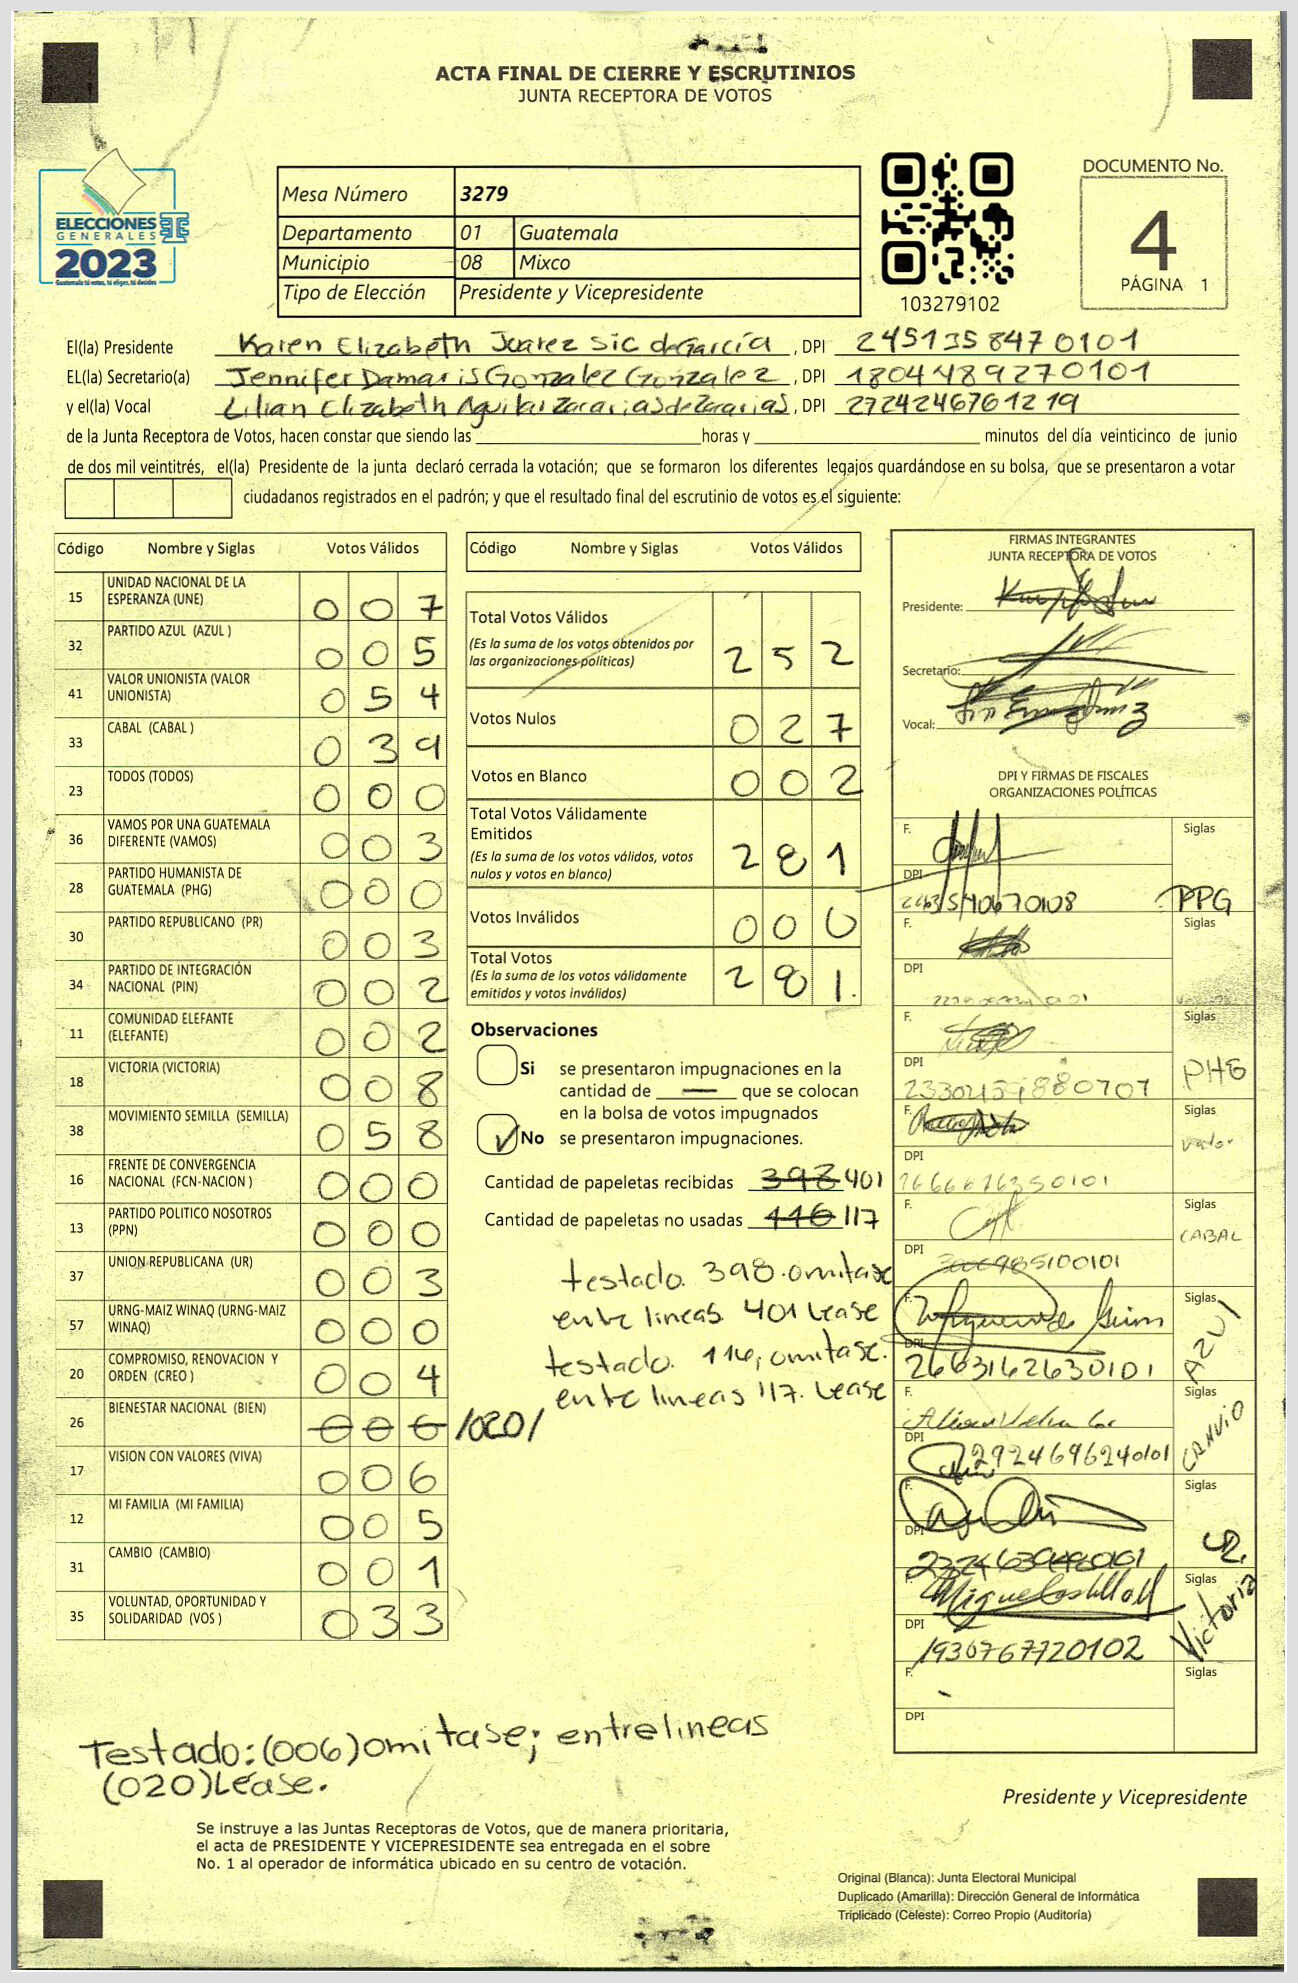 ACTA FINAL DE CIERRE Y ESCRUTINIOS
JUNTA RECEPTORA DE VOTOS
ELECCIONES
GENERALES
2023
Guatemala tú votas, tú eliges, tú decides
Mesa Número 3279
Departamento 01 Guatemala
Municipio 08 Mixco
Tipo de Elección Presidente y Vicepresidente
103279102
DOCUMENTO No.
4
PÁGINA 1
El(la) Presidente Karen Elizabeth Juarez Sic de García , DPI 2451358470101
EL(la) Secretario(a) Jennifer Damaris Gonzalez Gonzalez , DPI 1804489270101
y el(la) Vocal Lilian Elizabeth Aguilar Zacarias de Zacarias , DPI 2724246761219
de la Junta Receptora de Votos, hacen constar que siendo las horas y minutos del día veinticinco de junio
de dos mil veintitrés, el(la) Presidente de la junta declaró cerrada la votación; que se formaron los diferentes legajos guardándose en su bolsa, que se presentaron a votar
ciudadanos registrados en el padrón; y que el resultado final del escrutinio de votos es el siguiente:
Código Nombre y Siglas Votos Válidos
15 UNIDAD NACIONAL DE LA ESPERANZA (UNE) 0 0 7
32 PARTIDO AZUL (AZUL ) 0 0 5
41 VALOR UNIONISTA (VALOR UNIONISTA) 0 5 4
33 CABAL (CABAL ) 0 3 9
23 TODOS (TODOS) 0 0 0
36 VAMOS POR UNA GUATEMALA DIFERENTE (VAMOS) 0 0 3
28 PARTIDO HUMANISTA DE GUATEMALA (PHG) 0 0 0
30 PARTIDO REPUBLICANO (PR) 0 0 3
34 PARTIDO DE INTEGRACIÓN NACIONAL (PIN) 0 0 2
11 COMUNIDAD ELEFANTE (ELEFANTE) 0 0 2
18 VICTORIA (VICTORIA) 0 0 8
38 MOVIMIENTO SEMILLA (SEMILLA) 0 5 8
16 FRENTE DE CONVERGENCIA NACIONAL (FCN-NACION ) 0 0 0
13 PARTIDO POLITICO NOSOTROS (PPN) 0 0 0
37 UNION REPUBLICANA (UR) 0 0 3
57 URNG-MAIZ WINAQ (URNG-MAIZ WINAQ) 0 0 0
20 COMPROMISO, RENOVACION Y ORDEN (CREO ) 0 0 4
26 BIENESTAR NACIONAL (BIEN) 0 0 6 /020/
17 VISION CON VALORES (VIVA) 0 0 6
12 MI FAMILIA (MI FAMILIA) 0 0 5
31 CAMBIO (CAMBIO) 0 0 1
35 VOLUNTAD, OPORTUNIDAD Y SOLIDARIDAD (VOS ) 0 3 3
Código Nombre y Siglas Votos Válidos
Total Votos Válidos 2 5 2
(Es la suma de los votos obtenidos por
las organizaciones políticas)
Votos Nulos 0 2 7
Votos en Blanco 0 0 2
Total Votos Válidamente
Emitidos 2 8 1
(Es la suma de los votos válidos, votos
nulos y votos en blanco)
Votos Inválidos 0 0 0
Total Votos 2 8 1.
(Es la suma de los votos válidamente
emitidos y votos inválidos)
Observaciones
Si se presentaron impugnaciones en la
cantidad de — que se colocan
en la bolsa de votos impugnados
No se presentaron impugnaciones.
Cantidad de papeletas recibidas 398 401
Cantidad de papeletas no usadas 116 117
testado. 398. omitase
entre lineas 401 Lease
testado. 116, omitase.
entre lineas 117. Lease
FIRMAS INTEGRANTES
JUNTA RECEPTORA DE VOTOS
Presidente:
Secretario:
Vocal:
DPI Y FIRMAS DE FISCALES
ORGANIZACIONES POLÍTICAS
F. Siglas
DPI
PPG
F. Siglas
DPI
F. Siglas
DPI PHG
F. Siglas
DPI Valor
F. Siglas
DPI CABAL
F. Siglas
DPI AZUL
2603162630101
F. Siglas
DPI
2924696240101
F. Siglas
DPI
F. Siglas
DPI Victoria
1930767720102
F. Siglas
DPI
Testado: (006) omitase; entrelineas
(020) Lease.
Presidente y Vicepresidente
Se instruye a las Juntas Receptoras de Votos, que de manera prioritaria,
el acta de PRESIDENTE Y VICEPRESIDENTE sea entregada en el sobre
No. 1 al operador de informática ubicado en su centro de votación.
Original (Blanca): Junta Electoral Municipal
Duplicado (Amarilla): Dirección General de Informática
Triplicado (Celeste): Correo Propio (Auditoría)